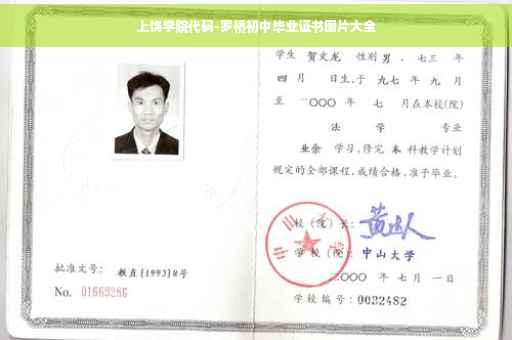 上饶学院代码-罗桥初中毕业证书图片大全
学生 贺文龙 性别 男 、七三 年
四 月 日生,于 九七 年 九 月
至 二〇〇〇 年 七 月在本校(院)
法 学 专业
业余 学习,修完 本 科教学计划
规定的全部课程,成绩合格,准予毕业。
校 (院) 长:
学 校 (院): 中山大学
二〇〇〇 年 七 月 一 日
学校编号: 0032482
批准文号: 教直[1993]8号
No. 01669286